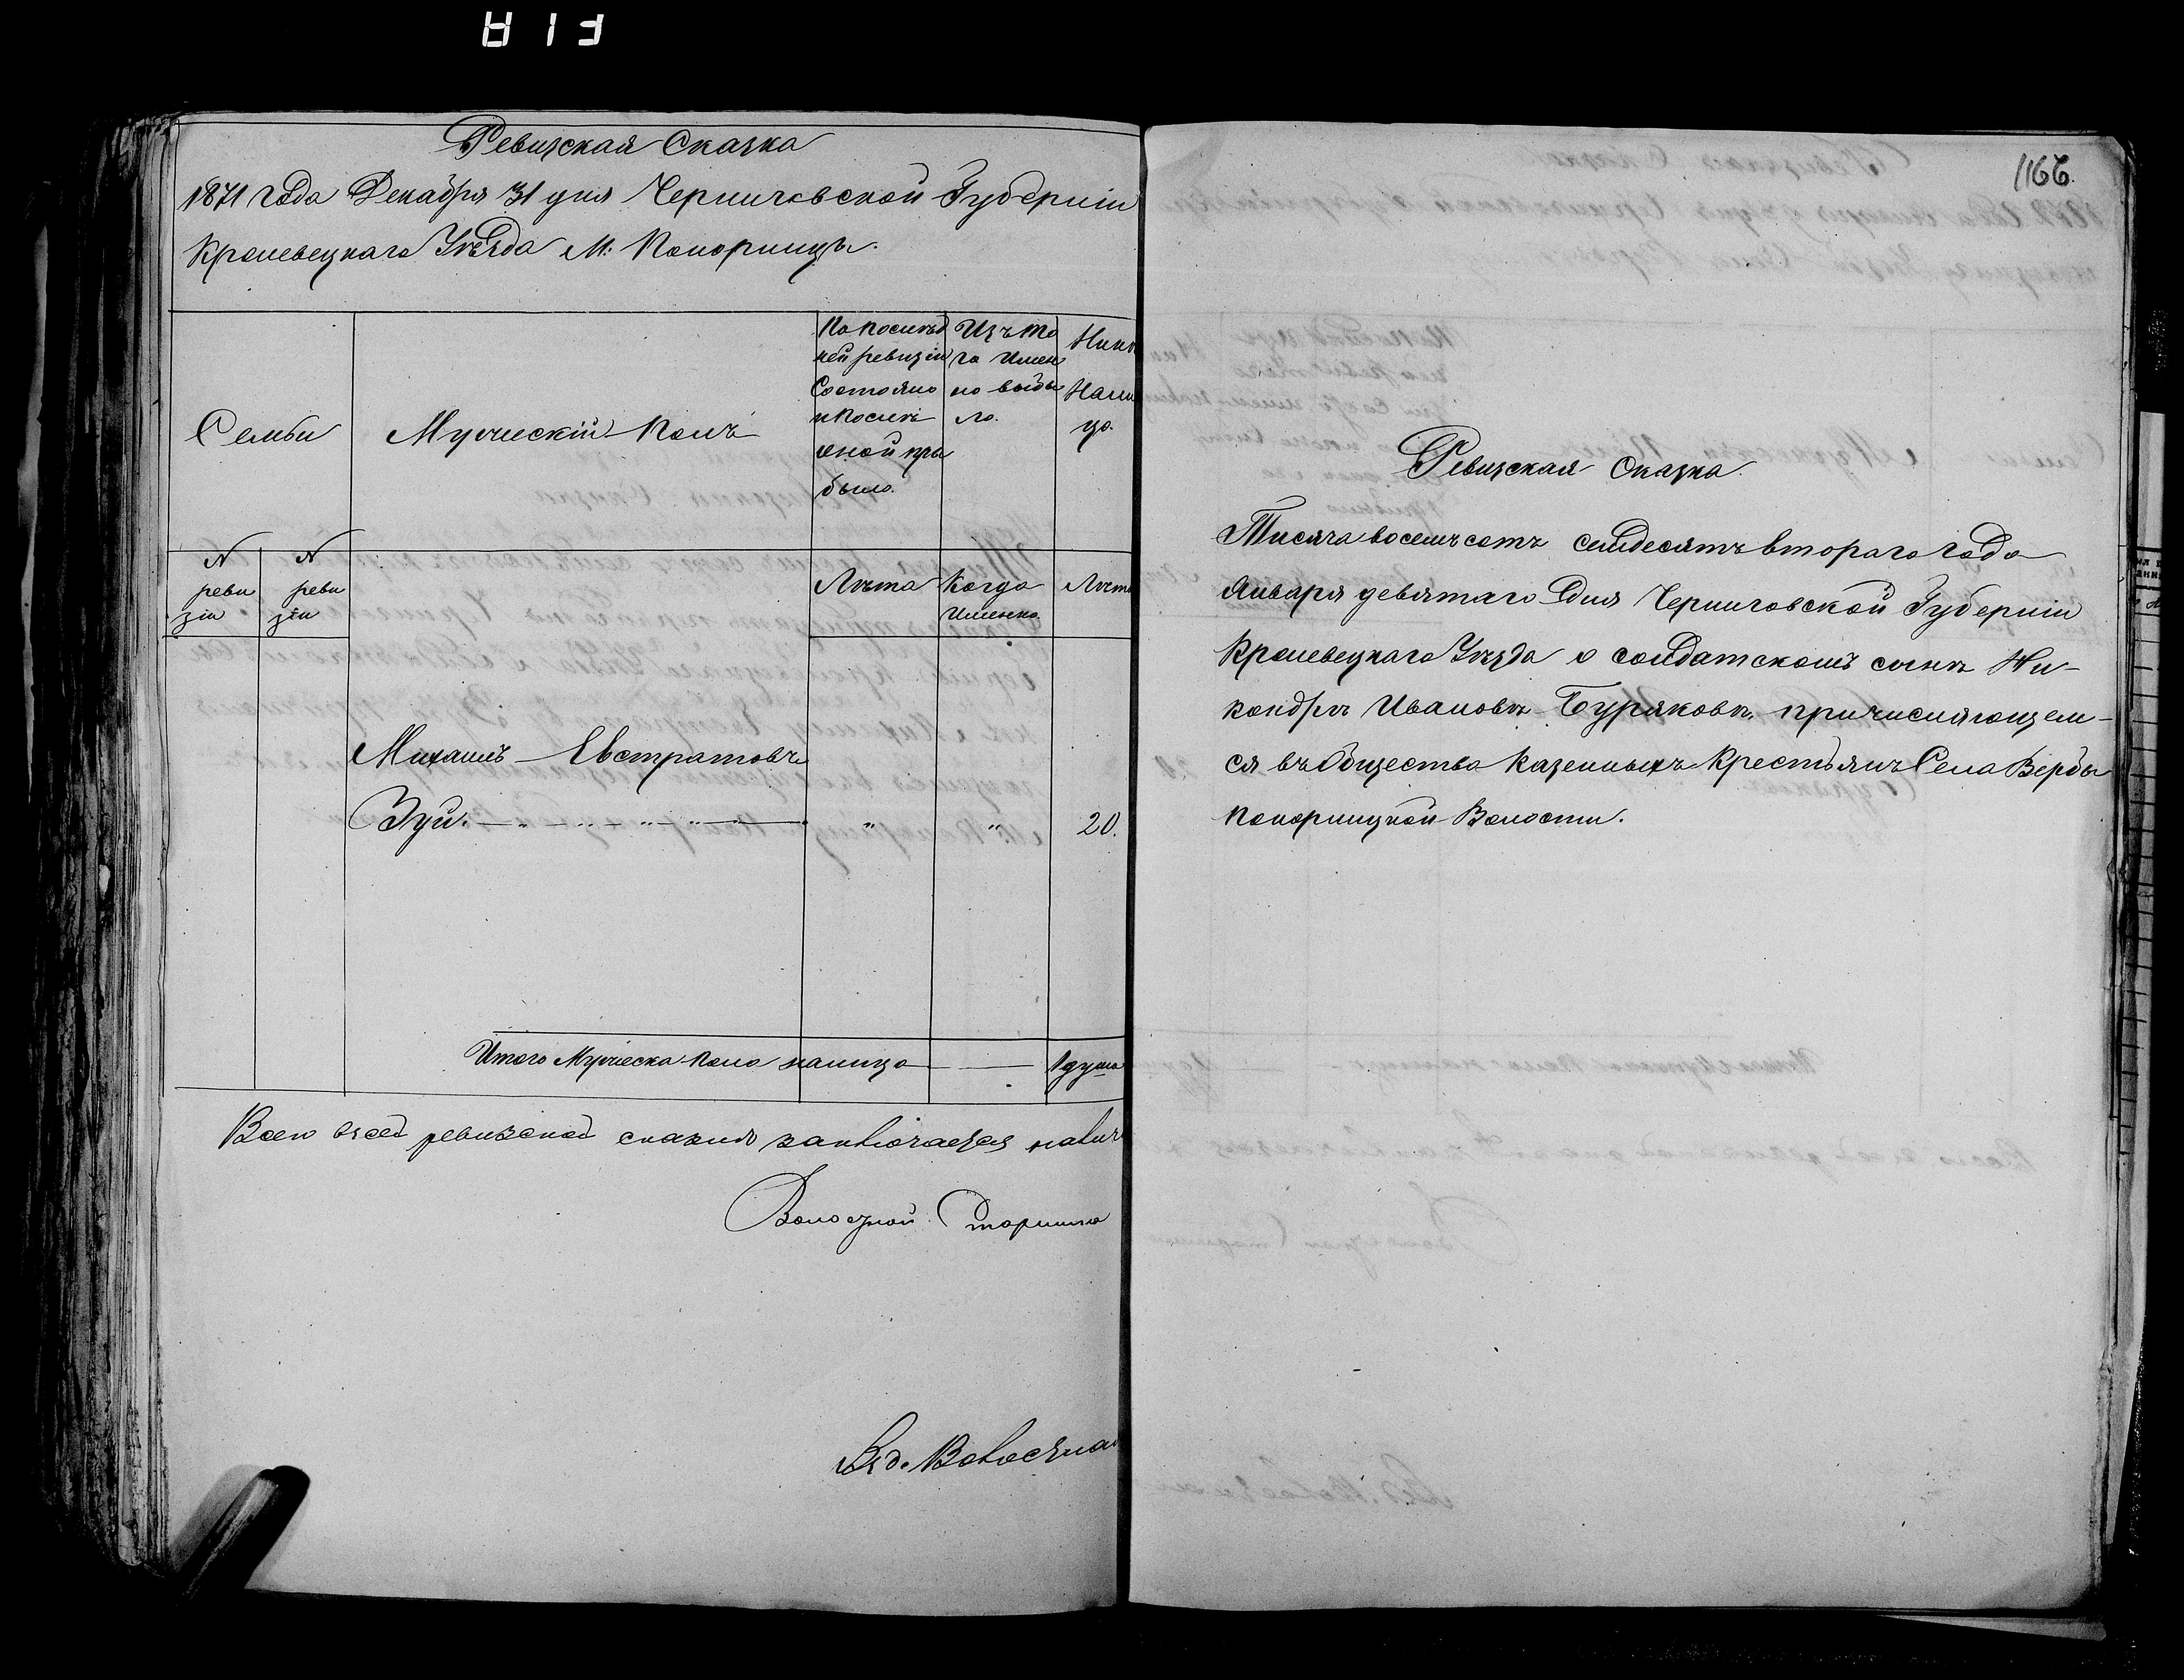 Ревизская Сказка
1871 года Декабря 31 дня Черниговской Губерніи
Кролевецкаго Уѣзда М: Понорницы.
По послѣд
ней ревизіи
Состояло
и послѣ
оной при
было.
Изъ то
го имен
но выбы
ло.
Нынѣ
Нали
цо.
Семьи
Мужескій Полъ
N
реви
зіи
N
реви
зіи
Лѣта
Когда
именно.
Лѣта
Михаилъ Евстратовъ
Зуй. " " 20.
Итого Мужеска пола налицо 1 душа
Всего в сей ревизской сказке заключается
Волостной Старшина
1166.
Ревизская Сказка.
Тисяча восемъ сотъ семдесятъ втораго года
Января девятаго Дня Черниговской Губерніи
Кролевецкаго Уѣзда о солдатскомъ сынѣ Ни-
кандрѣ Ивановѣ Буряковѣ, причисляющем-
ся въ Общества Казенныхъ Крестьянъ Села Вербы
Понорницкой Волости.